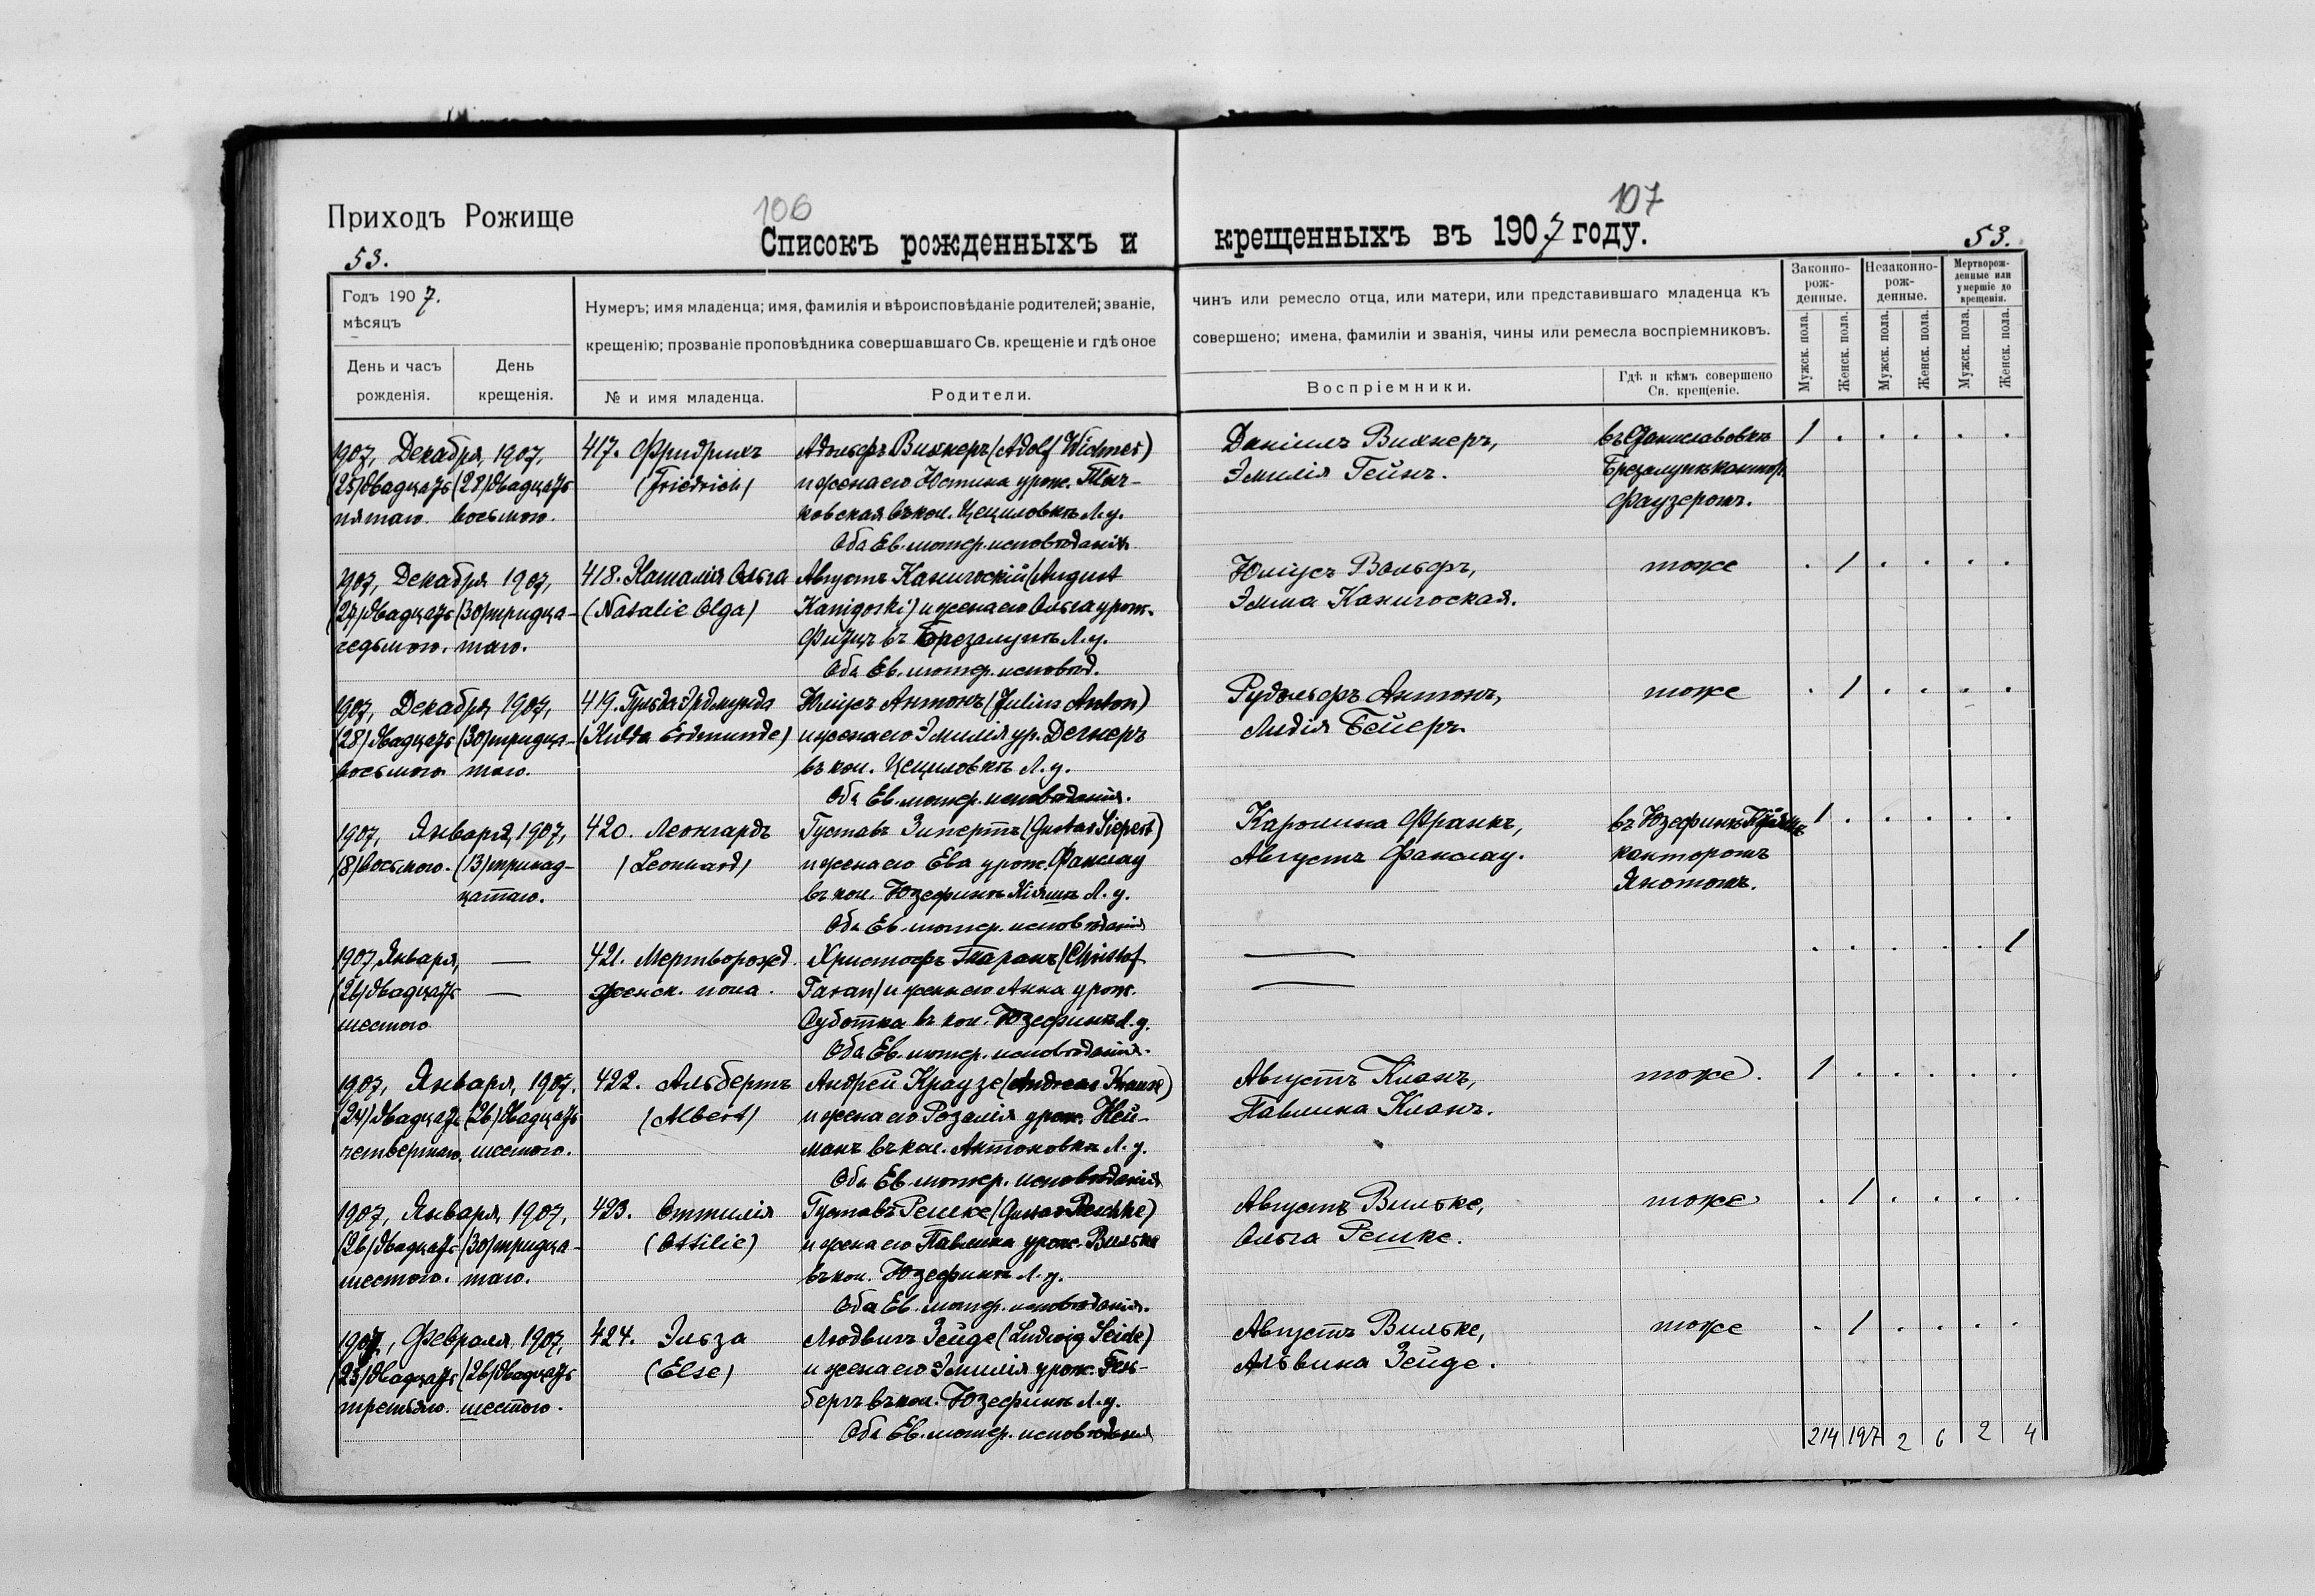 106
107
Приходъ Рожище
Списокъ рожденныхъ и
крещенныхъ въ 1907 году.
53.
53.
Годъ 1907.
мѣсяцъ
День и часъ рожденія.
День крещенія.
Нумеръ; имя младенца; имя, фамилія и вѣроисповѣданіе родителей; званіе,
крещенію; прозваніе проповѣдника совершавшаго Св. крещеніе и гдѣ оное
№ и имя младенца.
Родители.
чинъ или ремесло отца, или матери, или представившаго младенца къ
совершено; имена, фамиліи и званія, чины или ремесла воспріемниковъ.
Воспріемники.
Гдѣ и кѣмъ совершено
Св. крещеніе.
Законно-
рож-
денные.
Незаконно-
рож-
денные.
Мертворож-
денные или
умершіе до
крещенія.
Мужск. пола.
Женск. пола.
Мужск. пола.
Женск. пола.
Мужск. пола.
Женск. пола.
1907, Декабря, 1907,
(25) двадцать (28) двадцать
пятаго. восьмого.
417. Фридрихъ
(Friedrich)
Адольфъ Вихнеръ (Adolf Wichner)
и жена его Юстина урож.
въ кол. Цециловкѣ Л. у.
Оба Ев. лютер. исповѣданія.
Даніилъ Вихнеръ,
Эмилія Гейнъ.
1 . . . . .
1907, Декабря 1907,
(27) двадцать (30) тридца-
седьмого. таго.
418. Наталія Ольга
(Natalie Olga)
Августъ Канигоскій (August
Kanigoski) и жена его Ольга урож.
въ Л. у.
Оба Ев. лютер. исповѣд.
Юліусъ Вольфъ,
Эмма Канигоская.
тоже
. 1 . . . .
1907, Декабря 1907,
(28) двадцать (30) тридца-
восьмого таго.
419. Гульда Эрдмунда
(Hulda Erdmunde)
Юліусъ Антонъ (Julius Anton)
и жена его Эмилія ур. Дегнеръ
въ кол. Цециловкѣ Л. у.
Оба Ев. лютер. исповѣданія.
Рудольфъ Антонъ,
Лидія Бейеръ.
тоже
. 1 . . . .
1907, Января, 1907,
(8) восьмого. (13) тринад-
цатаго.
420. Леонгардъ
(Leonhard)
Густавъ Зипертъ (Gustav Siepert)
и жена его Ева урож. Фанслау
въ кол. Юзефинѣ Л. у.
Оба Ев. лютер. исповѣданія
Каролина Франкъ,
Августъ Фанслау.
въ Юзефинѣ
канторомъ
1 . . . . .
1907, Января, —
(26) двадцать —
шестого.
421. Мертворожд.
женск. пола.
Христофъ Таранъ (Christof
Taran) и жена его Анна урож.
Суботка въ кол. Юзефинѣ Л. у.
Оба Ев. лютер. исповѣданія.
—
—
. . . . . 1
1907, Января, 1907,
(24) двадцать (26) двадцать
четвертаго. шестого.
422. Альбертъ
(Albert)
Андрей Краузе (Andreas Krause)
и жена его Розалія урож. Ней-
манъ въ кол. Антоновкѣ Л. у.
Оба Ев. лютер. исповѣданія
Августъ Кланъ,
Павлина Кланъ.
тоже.
1 . . . . .
1907, Января, 1907,
(26) двадцать (30) тридца-
шестого. таго.
423. Оттилія
(Ottilie)
Густавъ Решке (Gustav Reschke)
и жена его Павлина урож. Вильке
въ кол. Юзефинѣ Л. у.
Оба Ев. лютер. исповѣданія.
Августъ Вильке,
Ольга Решке.
тоже
. 1 . . . .
1907, Февраля 1907,
(23) двадцать (26) двадцать
третьяго. шестого.
424. Эльза
(Else)
Людвигъ Зейде (Ludwig Seide)
и жена его Эмилія урож.
бергъ въ кол. Юзефинѣ Л. у.
Оба Ев. лютер. исповѣданія
Августъ Вильке,
Альвина Зейде.
тоже
. 1 . . . .
214 197 2 6 2 4